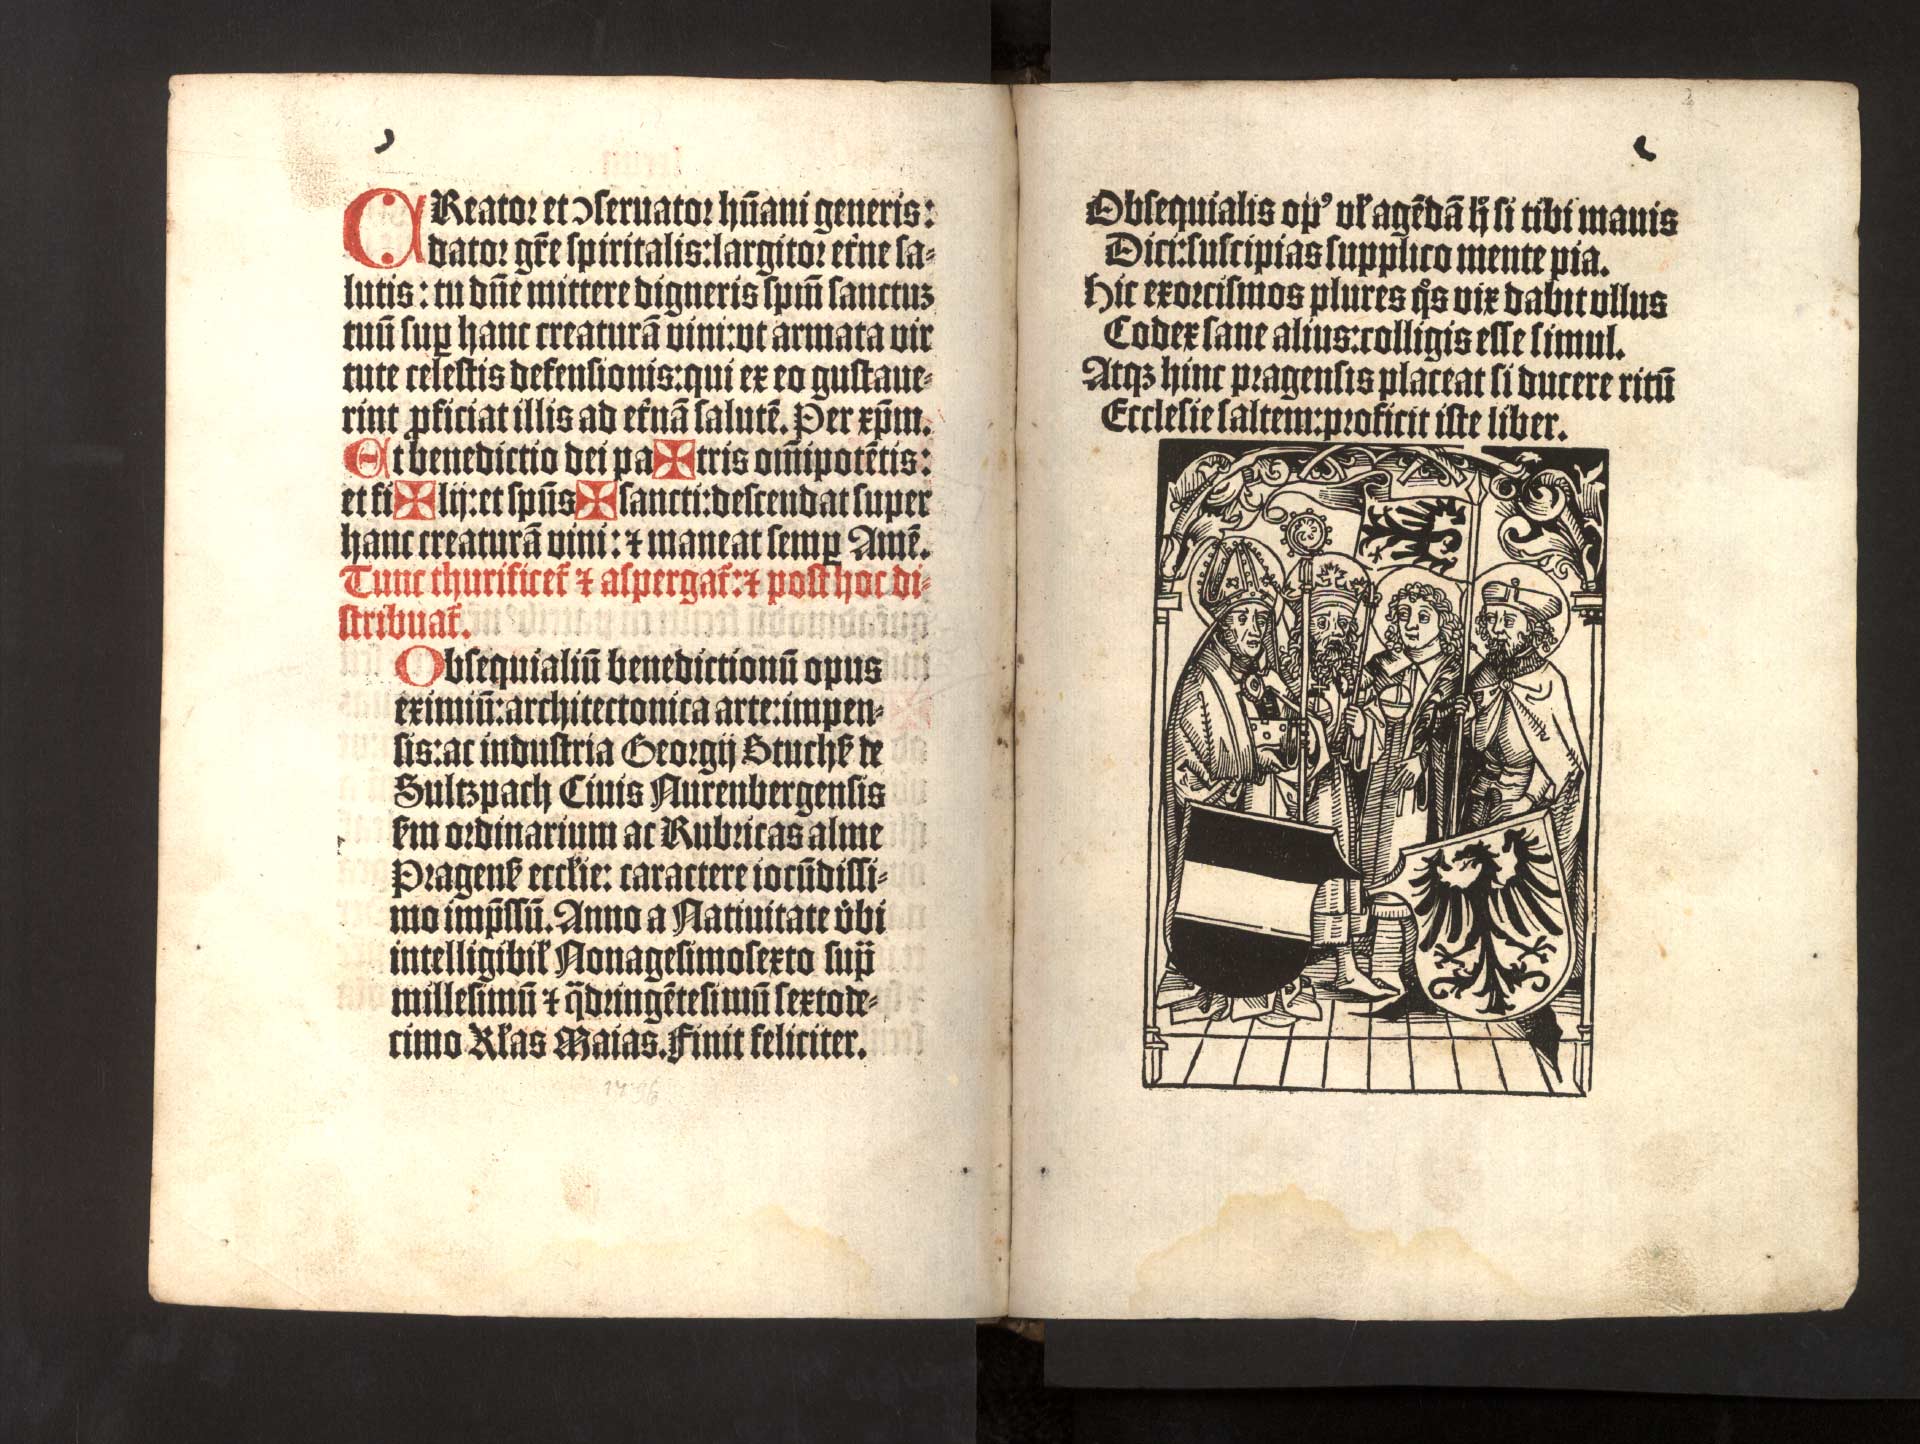 CReator et ↄseruator hūani generis:
dator gr̄e spiritalis: largitor et̄ne sa⸗
lutis: tu dn̄e mittere digneris spm̄ sanctuꝫ
tuū suꝑ hanc creaturā vini: vt armata vir
tute celestis defensionis: qui ex eo gustaue⸗
rint ꝓficiat illis ad et̄nā salutē. Per xp̄m.
Et benedictio dei pa✠tris om̄ipotētis:
et fi✠lij: et spūs✠sancti: descendat super
hanc creaturā vini: ⁊ maneat semꝑ Amē.
Tunc thurificet̄ ⁊ aspergat̄: ⁊ post hoc di⸗
stribuat̄.
Obsequialiū benedictionū opus
eximiū: architectonica arte: impen⸗
sis: ac industria Georgij Stuchs̄ de
Sultzpach Ciuis Nurenbergensis
s̄m ordinarium ac Rubricas alme
Pragens̄ eccl̄ie: caractere iocūdissi⸗
mo imp̄ssū. Anno a Natiuitate v̄bi
intelligibil̄ Nonagesimosexto sup̄
millesimū ⁊ q̄dringētesimū sextode⸗
cimo Kl̄as Maias. Finit feliciter.
1496
2
Obsequialis opꝰ vl̄ agēdā h̄ si tibi mauis
Dici: suscipias supplico mente pia.
Hic exorcismos plures q̊s vix dabit vllus
Codex sane alius: colligis esse simul.
Atqꝫ hinc pragensis placeat si ducere ritū
Ecclesie saltem: proficit iste liber.